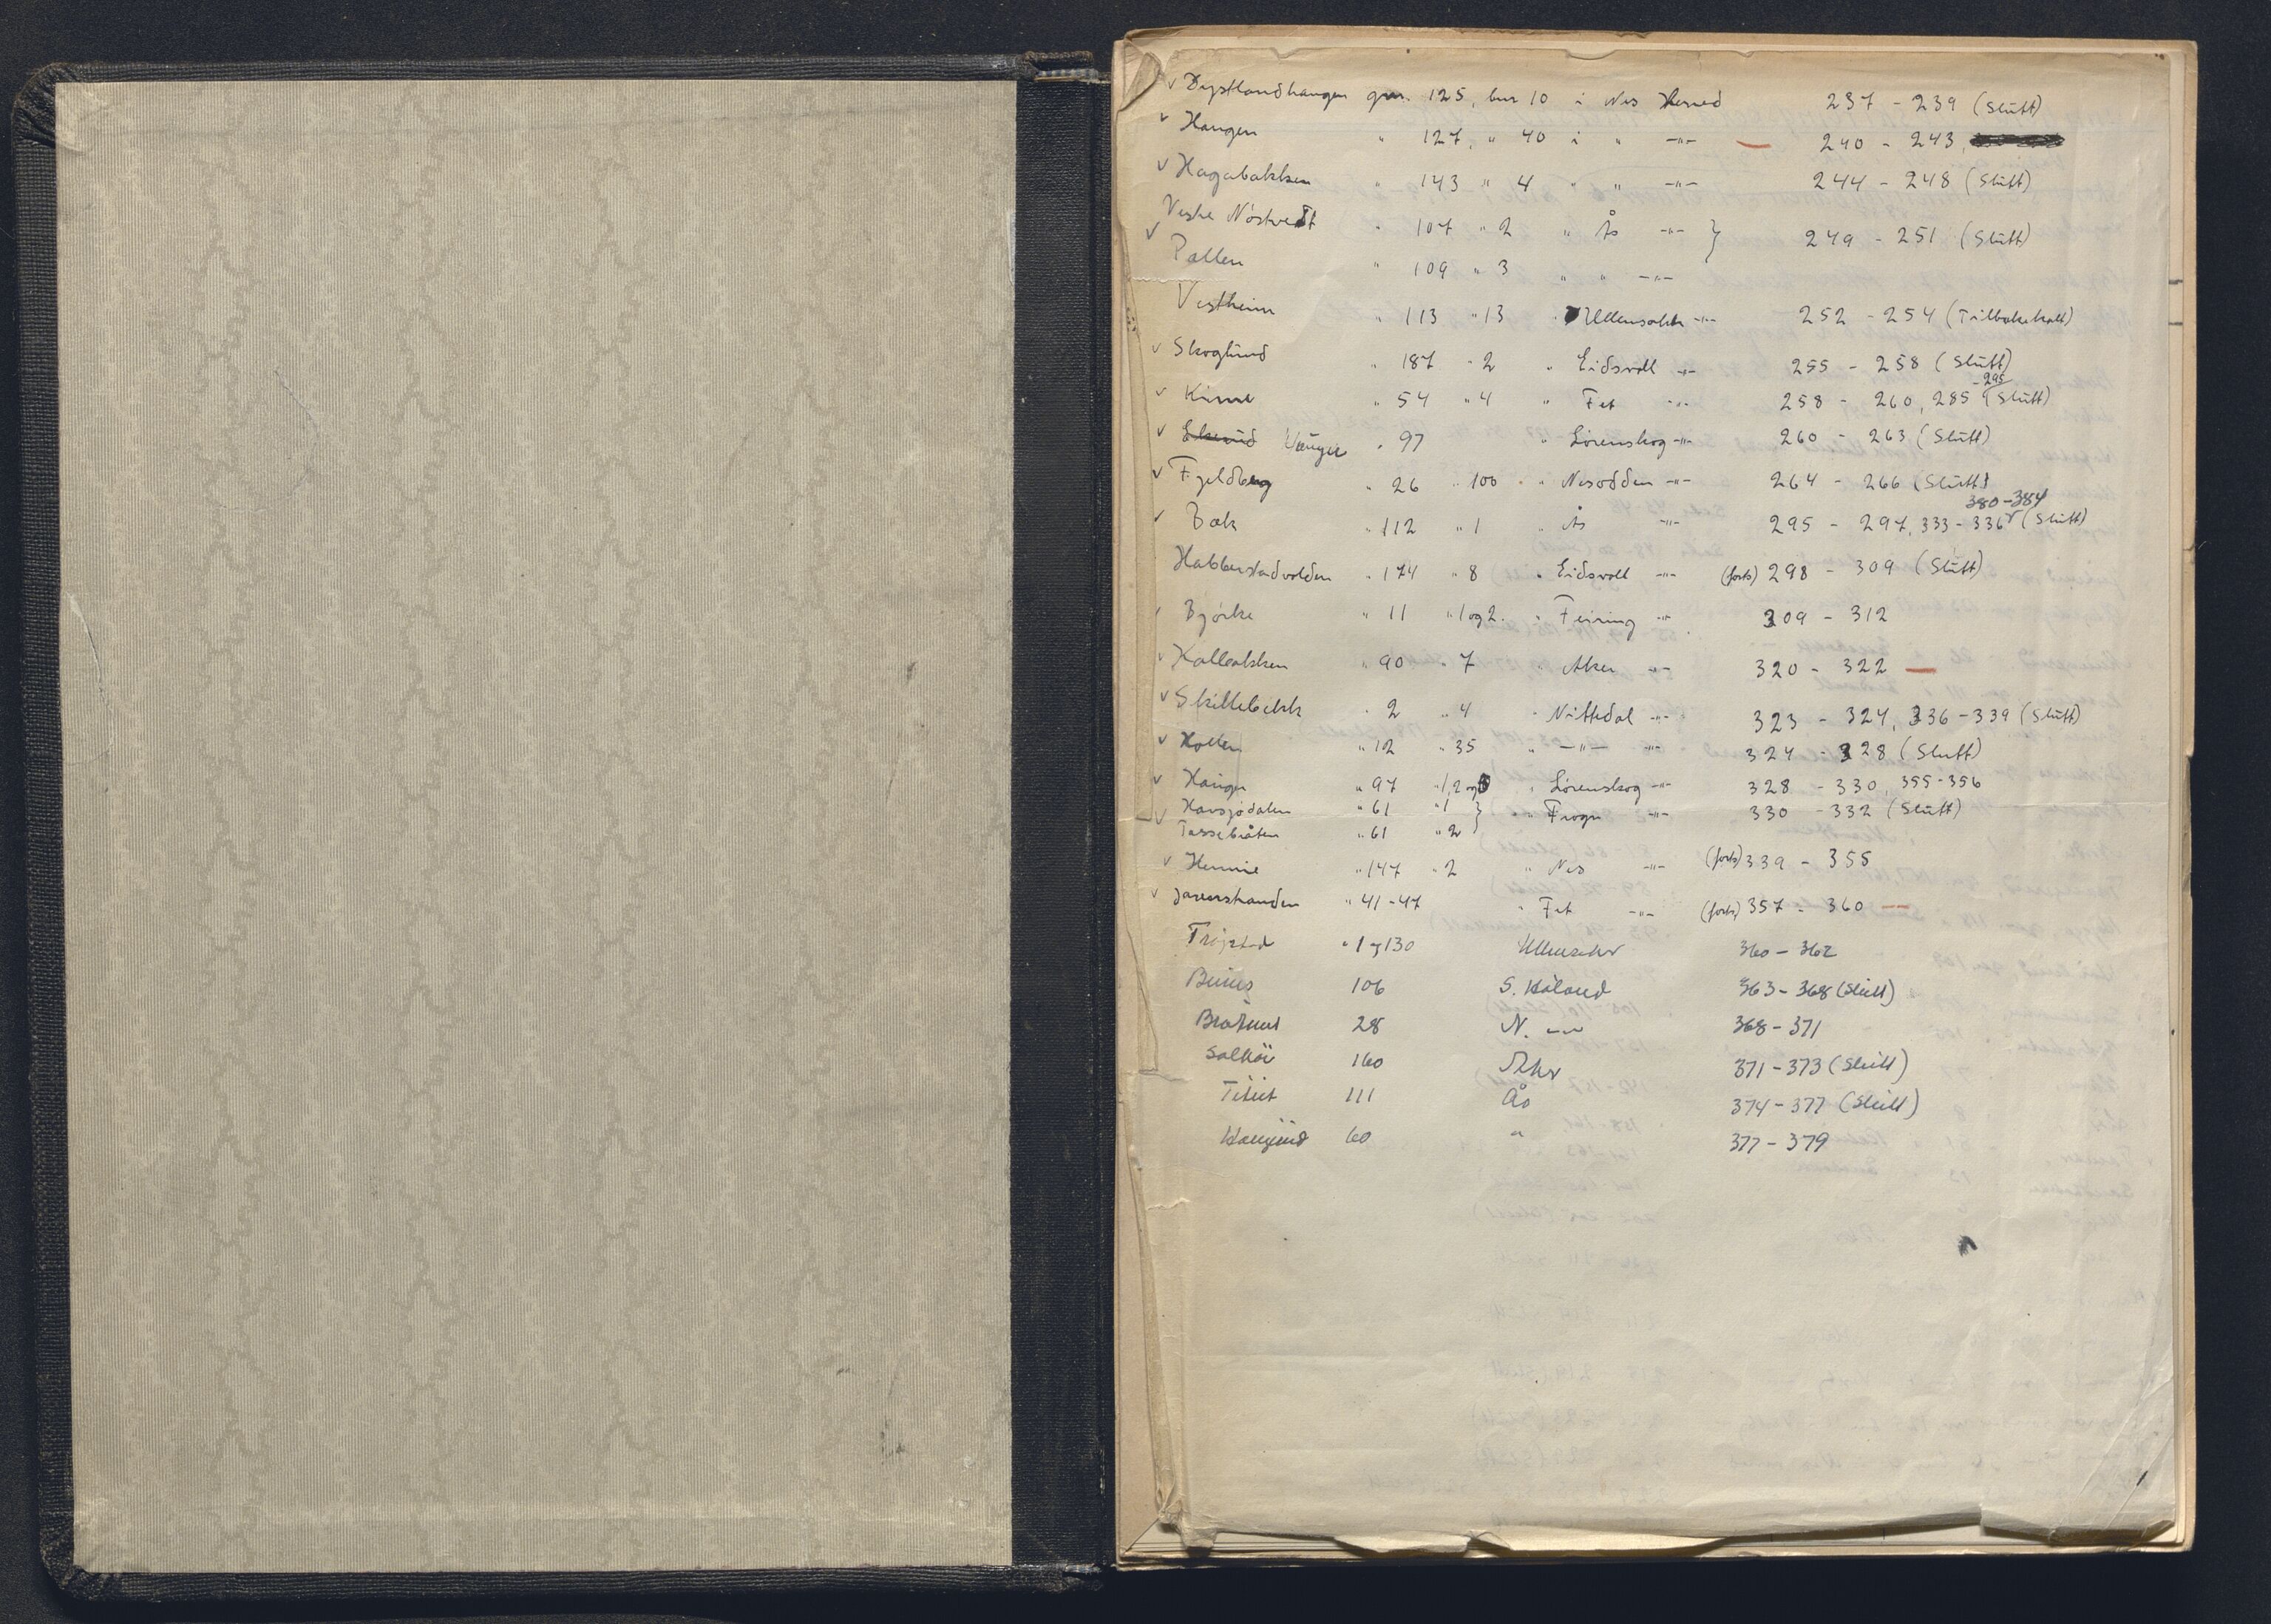 ✓ Dystlandhaugen gnr. 125, bnr 10 i Nes Herred 237 - 239 (Slutt)
✓ Haugen " 127, " 40 i " -"- — 240 - 243,
✓ Hagabakken " 143 " 4 " " -"- 244 - 248 (Slutt)
Vestre Nöstvedt " 107 " 2 " Ås -"- } 249 - 251 (Slutt)
✓ Pollen " 109 " 3 " " -"-
Vestheim " 113 " 13 " Ullensaker -"- 252 - 254 (Tilbakekalt)
✓ Skoglund " 187 " 2 " Eidsvoll -"- 255 - 258 (Slutt)
✓ " 54 " 4 " Fet -"- 258 - 260, 285 - 295 (Slutt)
✓ " 97 " Lörenskog -"- 260 - 263 (Slutt)
✓ Fjeldberg " 26 " 100 " Nesodden -"- 264 - 266 (Slutt)
✓ Bak " 112 " 1 " Ås -"- 295 - 297, 333 - 336 380-384 (Slutt)
Habberstadvolden " 174 " 8 " Eidsvoll -"- (forts) 298 - 309 (Slutt)
✓ Björke " 11 " 1 og 2. " Feiring -"- 309 - 312
✓ Kallbakken " 90 " 7 " Aker -"- 320 - 322 —
✓ Skillebekk " 2 " 4 " Nittedal -"- 323 - 324, 336 - 339 (Slutt)
✓ Holter " 12 " 35 " -"- -"- 324 - 328 (Slutt)
✓ Haugen " 97 " 1, 2 og " Lörenskog -"- 328 - 330, 355-356
✓ Havsjödalen " 61 " 1 } " Frogn -"- 330 - 332 (Slutt)
Tassebråten " 61 " 2
✓ Hennie " 147 " 2 " Nes -"- (forts) 339 - 355
✓ Jarenstranden " 41-47 " Fet -"- (forts) 357 - 360 —
" 1 og 130 Ullensaker 360 - 362
106 S. Höland 363 - 368 (Slutt)
28 N. -"- 368 - 371
160 Aker 371 - 373 (Slutt)
111 Ås 374 - 377 (Slutt)
60 " 377 - 379